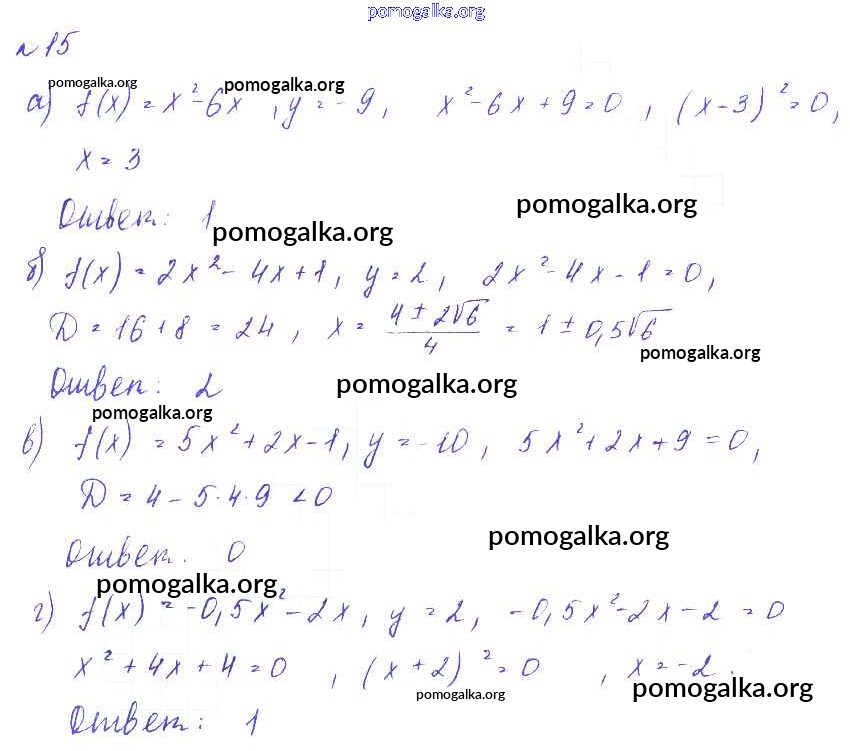 pomogalka.org
№15
pomogalka.org pomogalka.org
а) f(x) = x²-6x , y = -9, x²-6x+9=0 , (x-3)²=0,
x = 3
pomogalka.org
Ответ: 1
pomogalka.org
б) f(x) = 2x²-4x+1, y=2, 2x²-4x-1=0,
D = 16+8 = 24, x = (4±2√6)/4 = 1±0,5√6
pomogalka.org
Ответ: 2
pomogalka.org
pomogalka.org
в) f(x) = 5x²+2x-1, y=-10, 5x²+2x+9=0,
D = 4-5·4·9 <0
pomogalka.org
Ответ. 0
pomogalka.org
г) f(x) = -0,5x²-2x, y=2, -0,5x²-2x-2=0
x²+4x+4=0 , (x+2)²=0 , x=-2.
pomogalka.org pomogalka.org
Ответ: 1